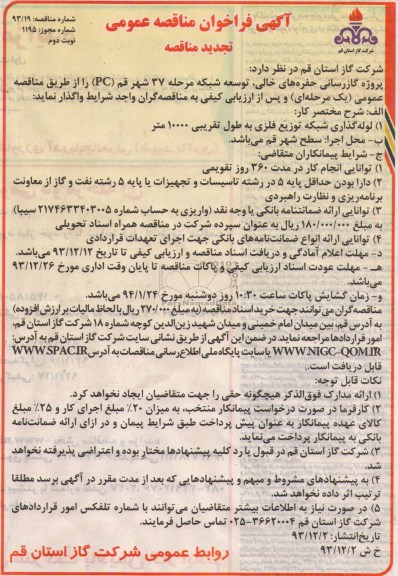 آگهی فراخوان مناقصه عمومی
تجدید مناقصه
شماره مناقصه: ۹۳/۱۹
شماره مجوز: ۱۱۹۵
نوبت دوم
شرکت گاز استان قم
شرکت گاز استان قم در نظر دارد:
پروژه گازرسانی حفره‌های خالی، توسعه شبکه مرحله ۳۷ شهر قم (PC) را از طریق مناقصه
عمومی (یک مرحله‌ای) و پس از ارزیابی کیفی به مناقصه‌گران واجد شرایط واگذار نماید:
الف: شرح مختصر کار:
۱) لوله‌گذاری شبکه توزیع فلزی به طول تقریبی ۱۰۰۰۰ متر
ب- محل اجرا: سطح شهر قم می‌باشد.
ج- شرایط پیمانکاران متقاضی:
۱) توانایی انجام کار در مدت ۳۶۰ روز تقویمی
۲) دارا بودن حداقل پایه ۵ در رشته تاسیسات و تجهیزات یا پایه ۵ رشته نفت و گاز از معاونت
برنامه‌ریزی و نظارت راهبردی
۳) توانایی ارائه ضمانتنامه بانکی یا وجه نقد (واریزی به حساب شماره ۲۱۷۴۶۳۳۴۰۳۰۰۵ سیبا)
به مبلغ ۱۸۰/۰۰۰/۰۰۰ ریال به عنوان سپرده شرکت در مناقصه همراه اسناد تحویلی
۴) توانایی ارائه انواع ضمانت‌نامه‌های بانکی جهت اجرای تعهدات قراردادی
د- مهلت اعلام آمادگی و دریافت اسناد مناقصه و ارزیابی کیفی تا تاریخ ۹۳/۱۲/۱۲ می‌باشد.
هـ - مهلت عودت اسناد ارزیابی کیفی و پاکات مناقصه تا پایان وقت اداری مورخ ۹۳/۱۲/۲۶
می‌باشد.
و- زمان گشایش پاکات ساعت ۱۰:۳۰ روز دوشنبه مورخ ۹۴/۱/۲۴ می‌باشد.
مناقصه‌گران می‌توانند جهت خرید اسناد مناقصه (به مبلغ ۲۷۰/۰۰۰ ریال با لحاظ مالیات بر ارزش افزوده)
به آدرس قم، بین میدان امام خمینی و میدان شهید زین‌الدین کوچه شماره ۱۸ شرکت گاز استان قم،
امور قراردادها مراجعه نماید. در ضمن این آگهی از طریق نشانی سایت شرکت گاز استان قم به آدرس:
WWW.NIGC-QOM.IR یا سایت پایگاه ملی اطلاع‌رسانی مناقصات به آدرس WWW.SPAC.IR
قابل دریافت است.
نکات قابل توجه:
۱) ارائه مدارک فوق‌الذکر هیچگونه حقی را جهت متقاضیان ایجاد نخواهد کرد.
۲) کارفرما در صورت درخواست پیمانکار منتخب، به میزان ۲۰٪ مبلغ اجرای کار و ۲۵٪ مبلغ
کالای عهده پیمانکار به عنوان پیش پرداخت طبق شرایط پیمان و در ازای ارائه ضمانت‌نامه
بانکی به پیمانکار پرداخت می‌نماید.
۳) شرکت گاز استان قم در قبول یا رد کلیه پیشنهادها مختار بوده و اعتراضی پذیرفته نخواهد
شد.
۴) به پیشنهادهای مشروط و مبهم و پیشنهادهایی که بعد از مدت مقرر در آگهی برسد مطلقا
ترتیب اثر داده نخواهد شد.
۵) در صورت نیاز به اطلاعات بیشتر متقاضیان می‌توانند با شماره تلفکس امور قراردادهای
شرکت گاز استان قم ۳۶۶۲۰۰۰۴-۰۲۵ تماس حاصل فرمایند.
تاریخ انتشار: ۹۳/۱۲/۲
خ ش ۹۳/۱۲/۲
روابط عمومی شرکت گاز استان قم